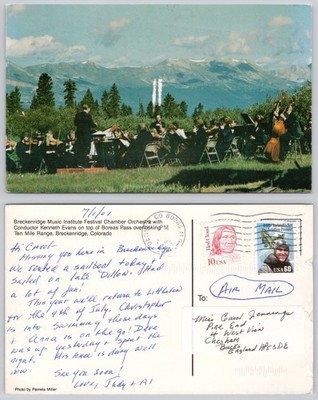 Breckenridge Music Institute Festival Chamber Orchestra with
Conductor Kenneth Evans on top of Boreas Pass overlooking
Ten Mile Range, Breckenridge, Colorado
7/1/01
Hi Carol -
Missing you here in Breckenridge.
We rented a sailboat today &
Sailed on Lake Dillon. Had
a lot of fun!
Thur. we'll return to Littleton
for the 4th of July. Christopher
is into Swimming these days
& Anna is on the go! Dave
was up yesterday & spent the
night. His knee is doing well
now.
See you soon!
Love, Judy & Al
Photo by Pamela Miller
Red Cloud
10 USA
USA
60
To:
AIR MAIL
Miss Carol Jennings
Pine End
4 West View
Chesham
Bucks
England HP5 3DE